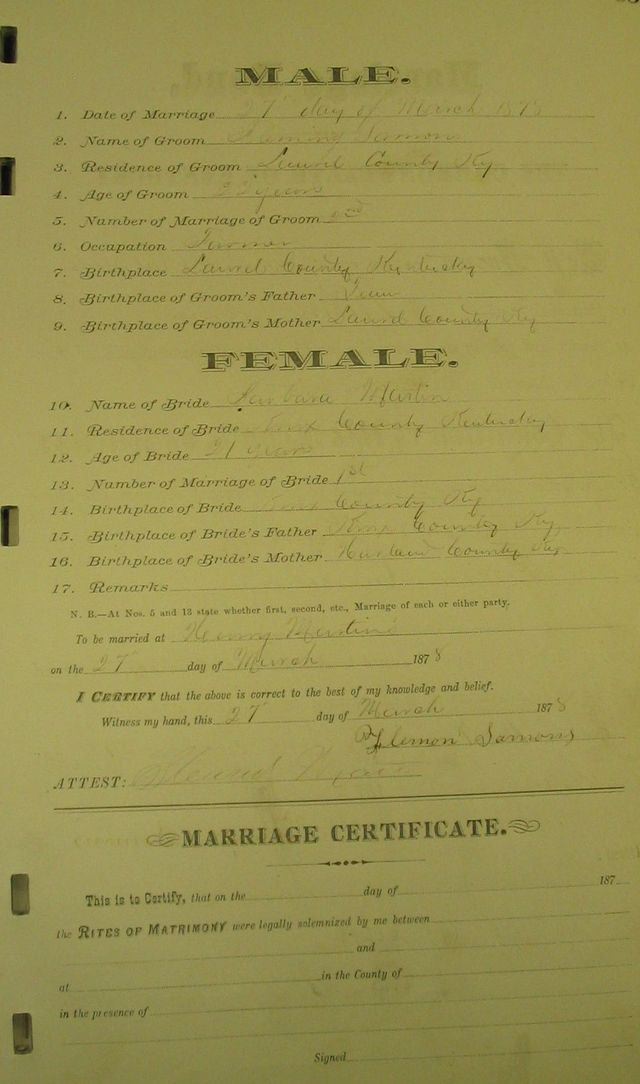 MALE.
1. Date of Marriage 27 day of March 1878
2. Name of Groom Samons
3. Residence of Groom Laurel County Ky
4. Age of Groom 22 years
5. Number of Marriage of Groom
6. Occupation Farmer
7. Birthplace Laurel County Kentucky
8. Birthplace of Groom's Father Tenn
9. Birthplace of Groom's Mother Laurel County Ky
FEMALE.
10. Name of Bride Barbara Martin
11. Residence of Bride Knox County Kentucky
12. Age of Bride 21 years
13. Number of Marriage of Bride 1st
14. Birthplace of Bride Knox County Ky
15. Birthplace of Bride's Father Knox County Ky
16. Birthplace of Bride's Mother Harland County Ky
17. Remarks
N. B.—At Nos. 5 and 13 state whether first, second, etc., Marriage of each or either party.
To be married at Henry Martins
on the 27 day of March 1878
I CERTIFY that the above is correct to the best of my knowledge and belief.
Witness my hand, this 27 day of March 1878
Flemon Samons
ATTEST:
MARRIAGE CERTIFICATE.
This is to Certify, that on the day of 187
the RITES OF MATRIMONY were legally solemnized by me between
and
at in the County of
in the presence of
Signed